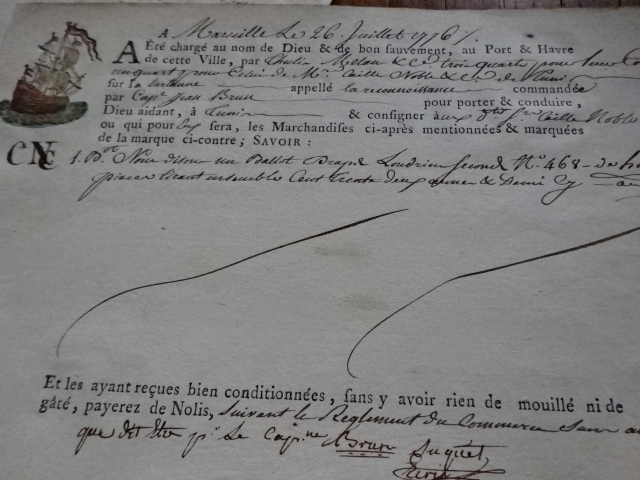 A Marseille Le 26 Juillet 1776
A Été chargé au nom de Dieu & de bon sauvement, au Port & Havre
de cette Ville, par & Cie. trois quarts pour leur
un quart pour Celui de Mr. Caille Noble & Cie de Tunis
sur la tartanne appellé la reconnoissance commandée
par Capne Jean Brun pour porter & conduire,
Dieu aidant, à Tunis & consigner aux Srs Caille Nobles
ou qui pour Eux sera, les Marchandises ci-après mentionnées & marquées
de la marque ci-contre; SAVOIR:
CNC 1. Bon. Nous disons un Ballot Draps Londrins Second No. 468
pieces tirant ensemble Cent trente deux aunes & Demi
Et les ayant reçues bien conditionnées, sans y avoir rien de mouillé ni de
gâté, payerez de Nolis, suivant le Reglement du Commerce sans
que dit Etre pr. Le Capne Brun